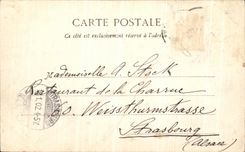 CARTE POSTALE
Ce côté est exclusivement réservé à l'adresse
Mademoiselle A. Stock
Restaurant de la Charrue
Weissthurmstrasse
Strasbourg
(Alsace)